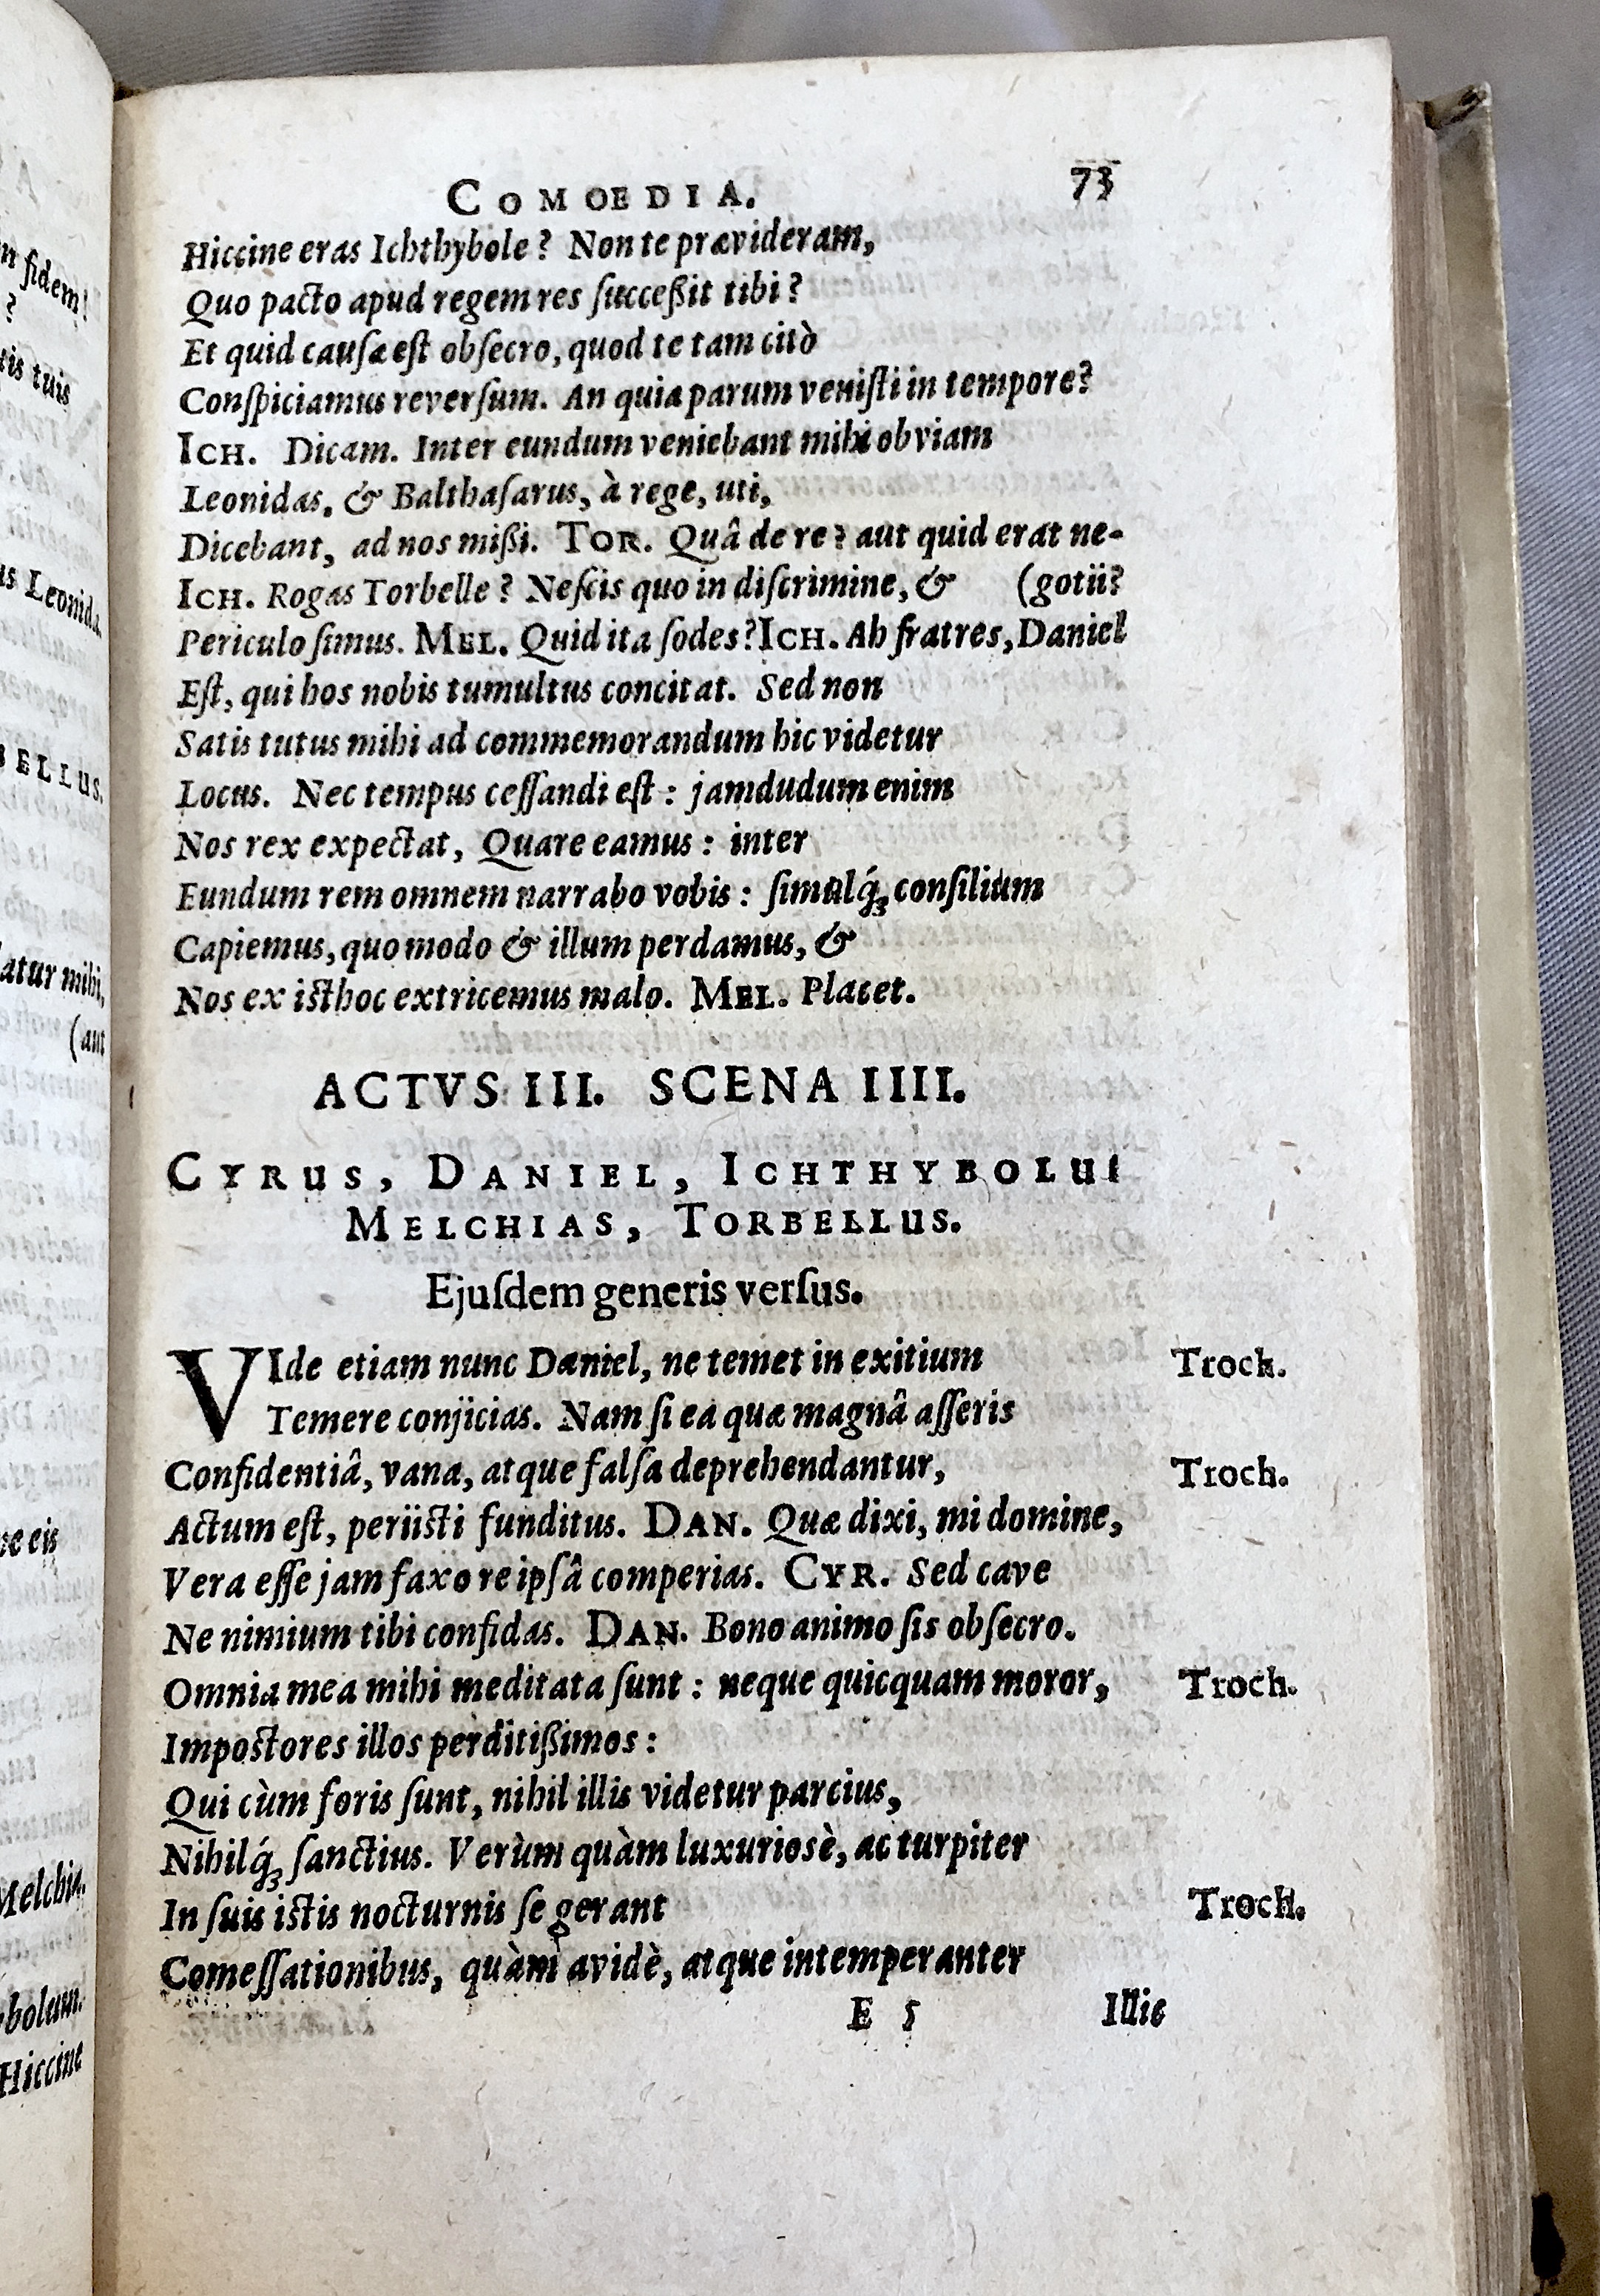 COMOEDIA. 73
Hiccine eras Ichthybole? Non te prævideram,
Quo pacto apud regem res ſucceßit tibi?
Et quid cauſæ eſt obſecro, quod te tam citò
Conſpiciamus reverſum. An quia parum veniſti in tempore?
ICH. Dicam. Inter eundum veniebant mihi obviam
Leonidas, & Balthaſarus, à rege, uti,
Dicebant, ad nos mißi. TOR. Quâ de re? aut quid erat ne-
ICH. Rogas Torbelle? Neſcis quo in diſcrimine, & (gotii?
Periculo ſimus. MEL. Quid ita ſodes? ICH. Ah fratres, Daniel
Eſt, qui hos nobis tumultus concitat. Sed non
Satis tutus mihi ad commemorandum hic videtur
Locus. Nec tempus ceſſandi eſt: jamdudum enim
Nos rex expectat, Quare eamus: inter
Eundum rem omnem narrabo vobis: ſimulq́; conſilium
Capiemus, quomodo & illum perdamus, &
Nos ex iſthoc extricemus malo. MEL. Placet.
ACTVS III. SCENA IIII.
CYRUS, DANIEL, ICHTHYBOLUS
MELCHIAS, TORBELLUS.
Ejuſdem generis verſus.
VIde etiam nunc Daniel, ne temet in exitium Troch.
Temere conjicias. Nam ſi ea quæ magnâ aſſeris
Confidentiâ, vana, atque falſa deprehendantur, Troch.
Actum eſt, periiſti funditus. DAN. Quæ dixi, mi domine,
Vera eſſe jam faxo re ipſâ comperias. CYR. Sed cave
Ne nimium tibi confidas. DAN. Bono animo ſis obſecro.
Omnia mea mihi meditata ſunt: neque quicquam moror, Troch.
Impoſtores illos perditißimos:
Qui cùm foris ſunt, nihil illis videtur parcius,
Nihilq́; ſanctius. Verùm quàm luxuriosè, ac turpiter
In ſuis iſtis nocturnis ſe gerant Troch.
Comeſſationibus, quàm avidè, atque intemperanter
E 5 Illic